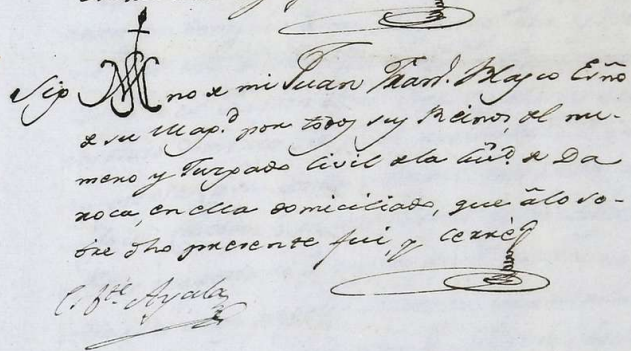 Sig no de mi Juan Fran.º Blasco Es.no
de su Mag.d por todos sus Reinos, del nu-
mero y Juzgado Civil de la Ciu.d de Da
roca, en ella domiciliado, que â lo so-
bre dho presente fui, y cerrè
Ayala